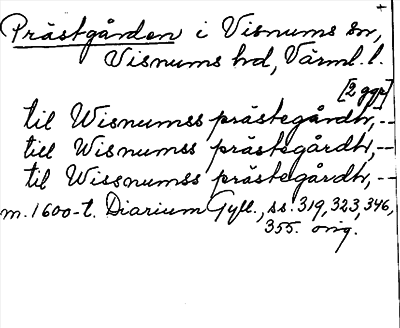 Prästgården i Visnums sn,
Visnums hd, Värml. l.
[2 ggr]
til Wisnumss prästegårdh, --
till Wisnums prästegårdh, --
til Wissnumss prästegårdh, --
m. 1600-t. Diarium Gyll., ss. 319, 323, 346,
355. orig.